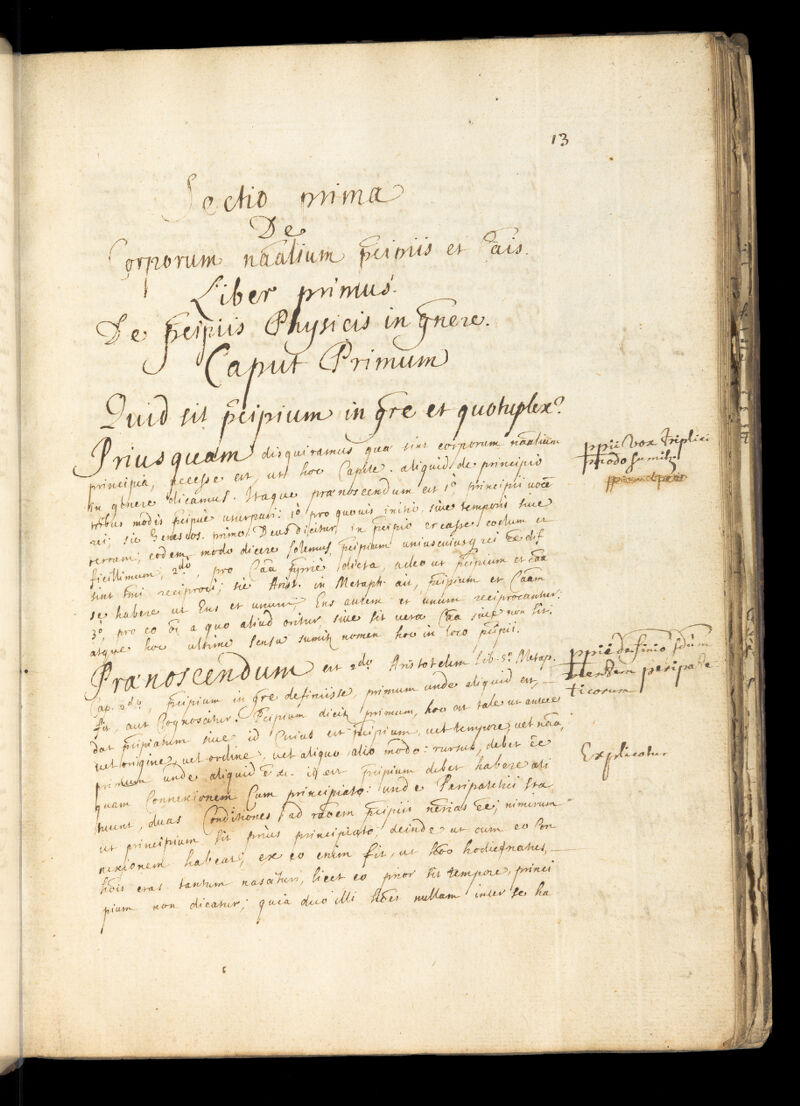 13
Sectio prima
De
Corporum nãalium p̃cipiis et c̃ais.
Liber primus.
De p̃cipiis Physicis in g̃nere.
Caput Primum
Quid sit p̃cipium in g̃re et quotuplex?
Priusquam disquiramus quæ sint corporum nãalium
principia, necesse est, ut hoc Capite aliquid de principio
in genere dicamus. Itaque prænoscendum est 1º principii vocē
tribus modis p̃cipue usurpari: 1º pro quovis initio, sive temporis sive
rei; sic Geneseos primo Deus dicitur in p̃cipio creasse cœlum et
terram; eodem modo dicere solemus p̃cipium uniuscuiusq; rei ēe dif
ficillimum, 2do, pro Cãa dicta, adeo ut p̃cipium et cãa
sint reciproci; sic Arist. in Metaph. ait, p̃cipium et Cãam
se habere ut Ens et unum, Ens autem et unum reciprocantur.
3º, pro eo a quo aliud oritur, sive sit vera Cãa sive non sit,
atque hoc ultimo sensu nomen hoc in loco p̃cipii.
Prænoscendum est 2do Aristotelem lib. 5º Metap.
Cap. p̃cipium in g̃re definiisse primum unde aliquid est,
fit, aut Cognoscatur. P̃cipium dicit primum, hoc est tale ut antece
dat p̃cipiatum sive id Cuius est p̃cipium, vel tempore, vel nãa,
vel origine, vel ordine, vel aliquo alio modo: rursus, debet ēe
primum unde aliquid ē &c. id est p̃cipium debet habere ali
quam Connexionem Cum principiato: unde Paripatetici sta
tuunt, duas Conditiones ad raoem p̃cipii nērias ēe; nimirum
ut principium sit prius principiato, deinde ut cum eo Con
nexionem habeat; ex eo enim fit, ut hõo hodie natus,
hõis cras tantum nascituri, licet eo prior sit tempore, princi
pium non dicatur; quia duo illi hões nullam inter se ha
ppii vox triplici
modo sumitur
ppii definio sdũm
mentem peripate
ticorum
Explicatur